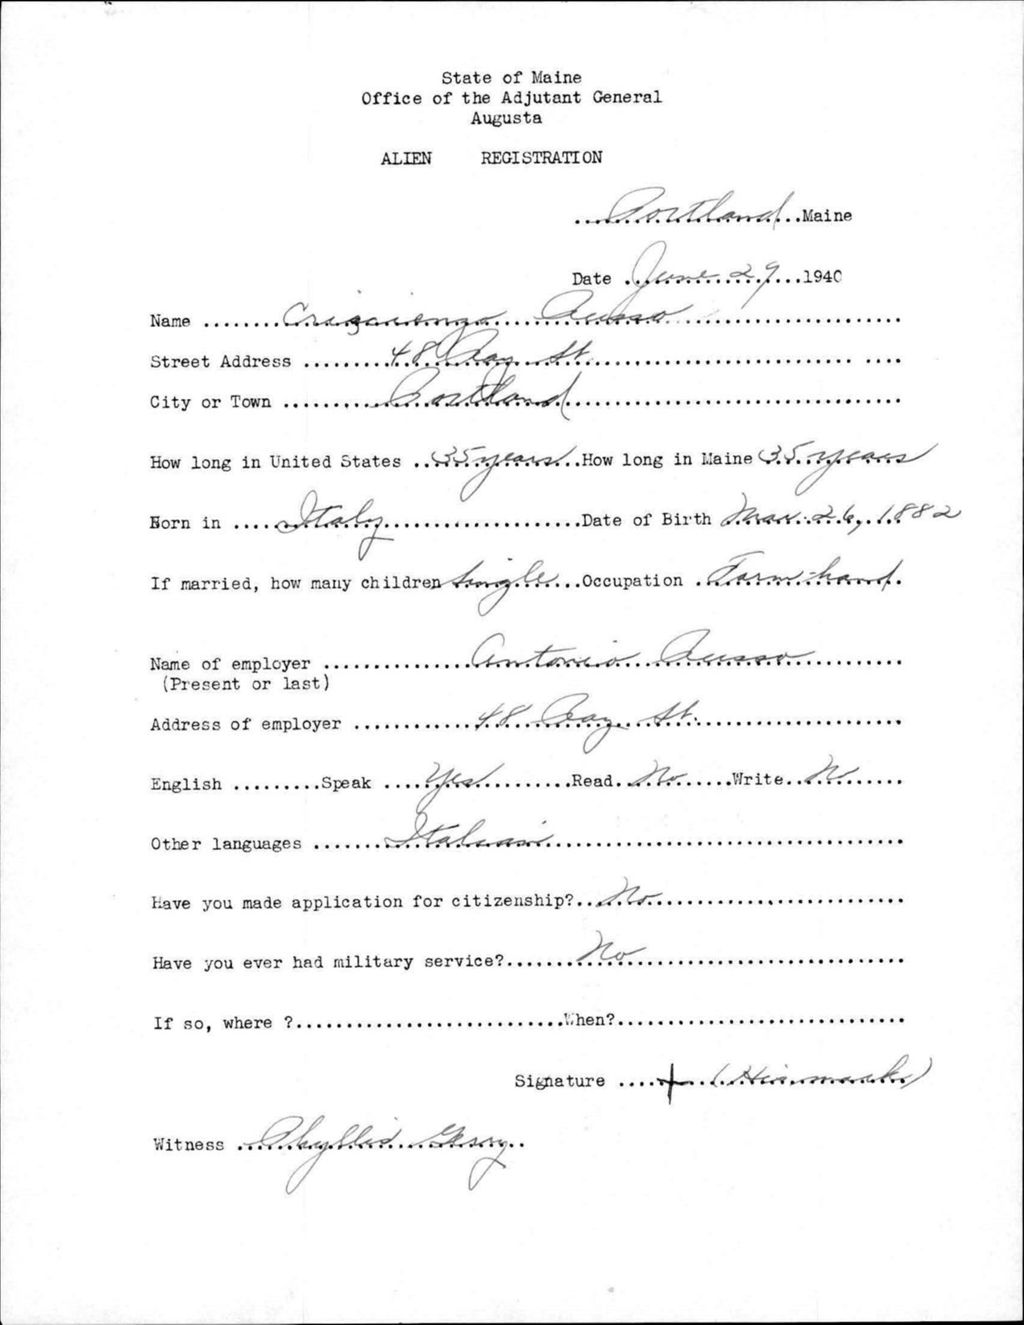 State of Maine
Office of the Adjutant General
Augusta
ALIEN REGISTRATION
Portland Maine
Date June 29 1940
Name Russo
Street Address 48 St.
City or Town Portland
How long in United States 35 years How long in Maine 35 years
Born in Italy Date of Birth Mar. 26, 1882
If married, how many children Single Occupation Farm-hand
Name of employer Antonio Russo
(Present or last)
Address of employer 48 St.
English Speak Yes Read No Write No
Other languages Italian
Have you made application for citizenship? No
Have you ever had military service? No
If so, where ? When?
Signature + (His mark)
Witness Phyllis